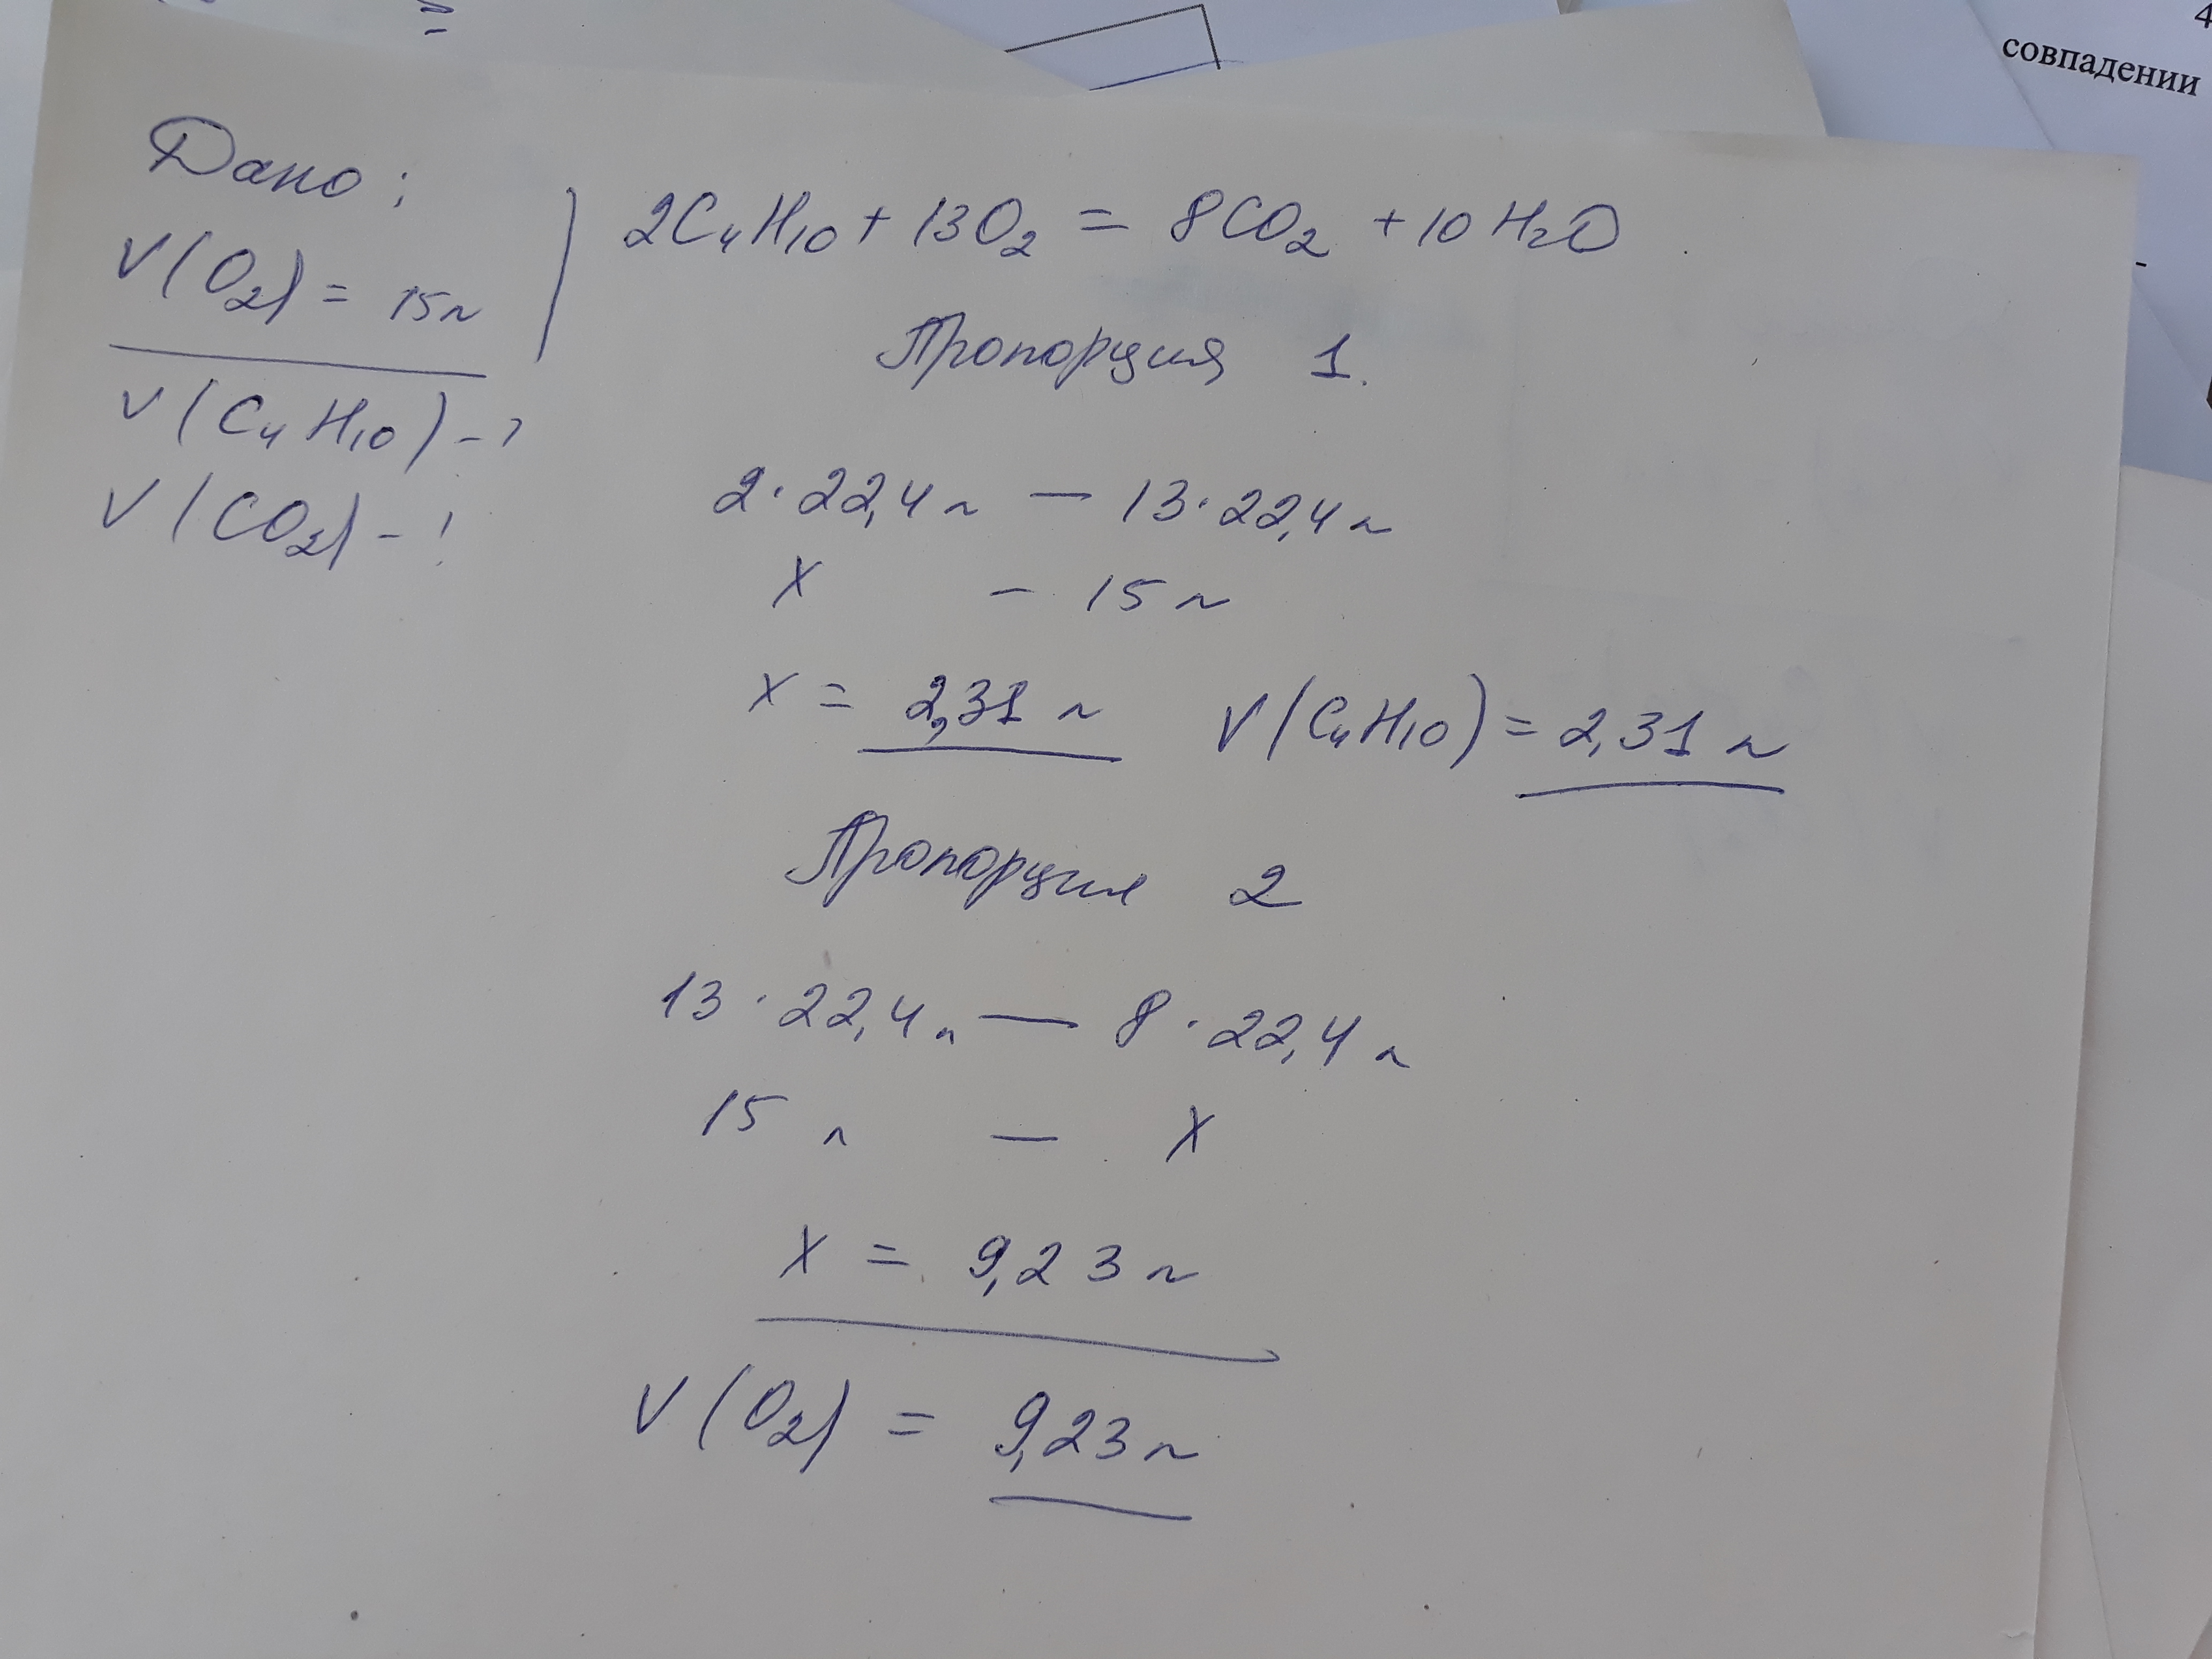 4
совпадении
=
Дано:
V(O2) = 15л
V(C4H10) - ?
V(CO2) - ?
2C4H10 + 13O2 = 8CO2 + 10H2O
Пропорция 1.
2·22,4л — 13·22,4л
X - 15л
X = 2,31 л V(C4H10) = 2,31 л
Пропорция 2
13·22,4л — 8·22,4л
15 л — X
X = 9,23л
V(O2) = 9,23л